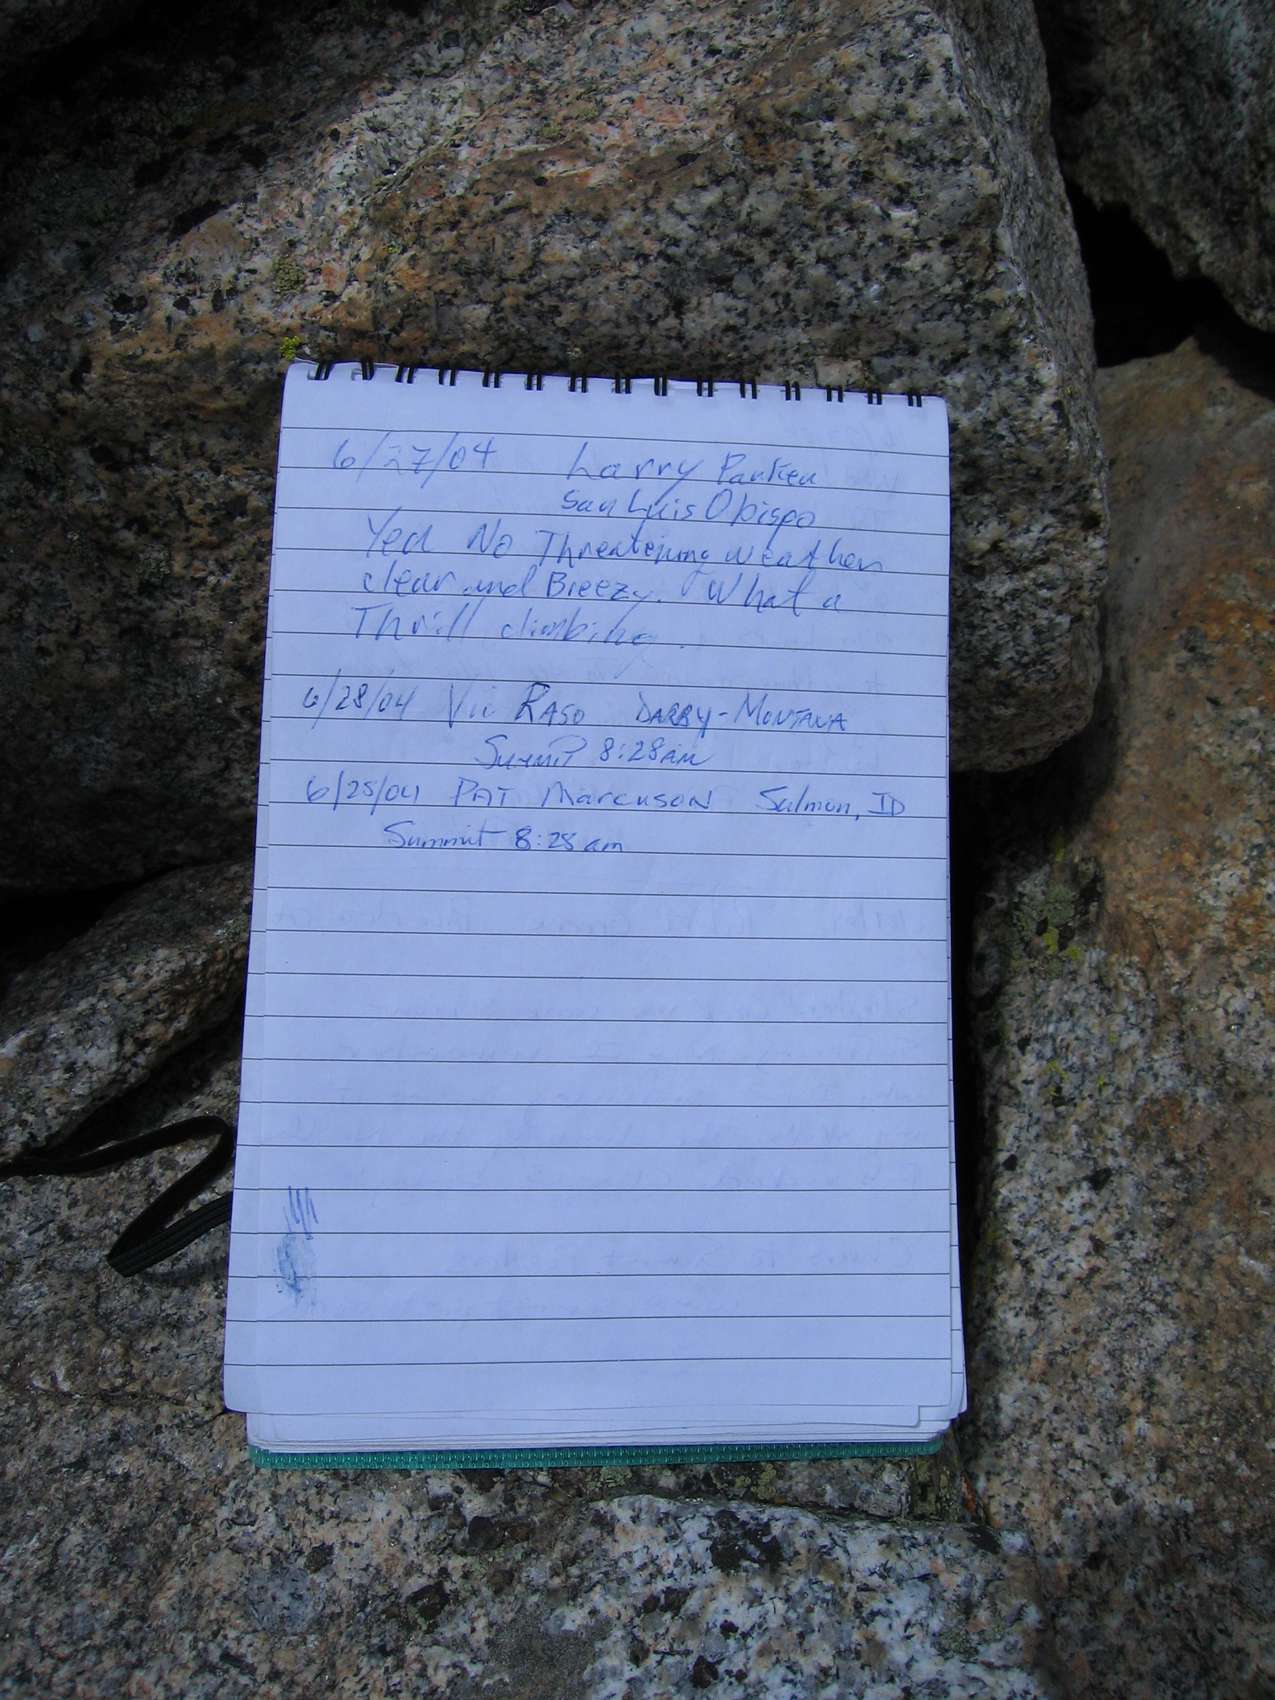 6/27/04 Larry Parker
San Luis Obispo
Yea No Threatening weather
clear and Breezy. What a
Thrill climbing.
6/28/04 Vic RASO DARBY-MONTANA
Summit 8:28am
6/28/04 PAT MARCUSON Salmon, ID
Summit 8:28 am